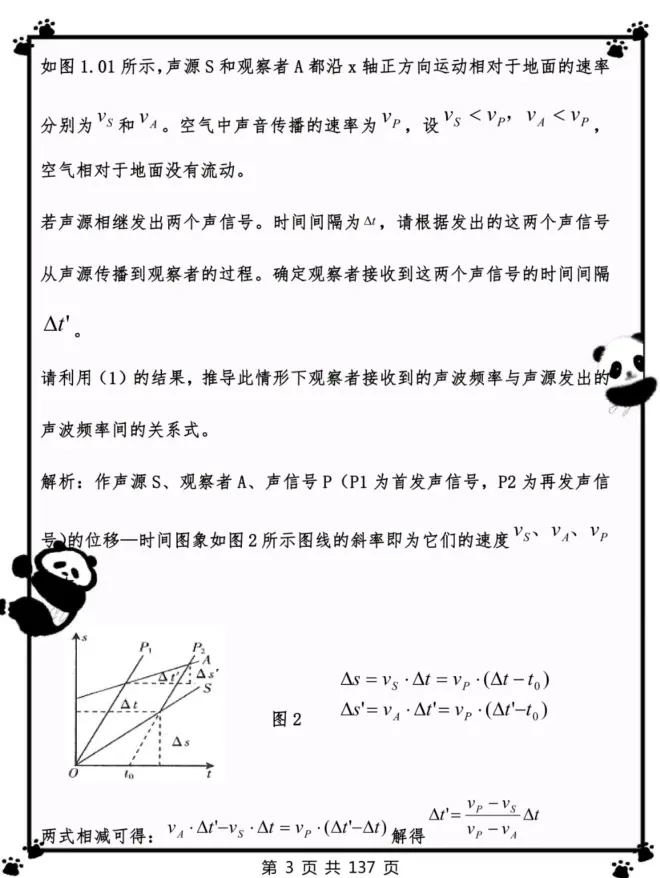 如图 1.01 所示，声源 S 和观察者 A 都沿 x 轴正方向运动相对于地面的速率
分别为 v_S 和 v_A。空气中声音传播的速率为 v_P，设 v_S < v_P，v_A < v_P，
空气相对于地面没有流动。
若声源相继发出两个声信号。时间间隔为 Δt，请根据发出的这两个声信号
从声源传播到观察者的过程。确定观察者接收到这两个声信号的时间间隔
Δt'。
请利用（1）的结果，推导此情形下观察者接收到的声波频率与声源发出的
声波频率间的关系式。
解析：作声源 S、观察者 A、声信号 P（P1 为首发声信号，P2 为再发声信
号)的位移—时间图象如图 2 所示图线的斜率即为它们的速度 v_S、v_A、v_P
s
P1
P2
A
Δt'
Δs'
S
Δt
Δs
O
t0
t
图 2
Δs = v_S · Δt = v_P · (Δt − t_0)
Δs' = v_A · Δt' = v_P · (Δt' − t_0)
两式相减可得：v_A · Δt' − v_S · Δt = v_P · (Δt' − Δt) 解得 Δt' = (v_P − v_S)/(v_P − v_A) Δt
第 3 页 共 137 页